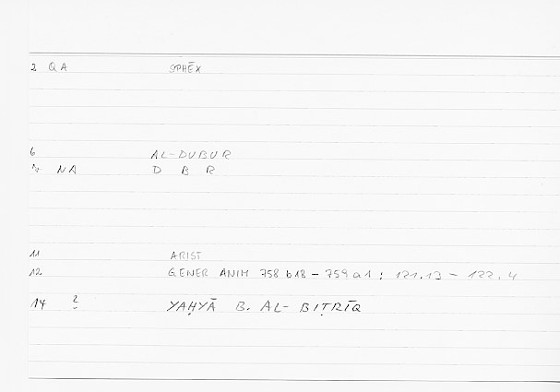 2 QA SPHĒX
6 AL-DUBUR
7 NA D B R
11 ARIST
12 GENER ANIM 758 b18 - 759 a1 ; 121.13 - 122.4
14 2 YAḤYĀ B. AL-BIṬRĪQ